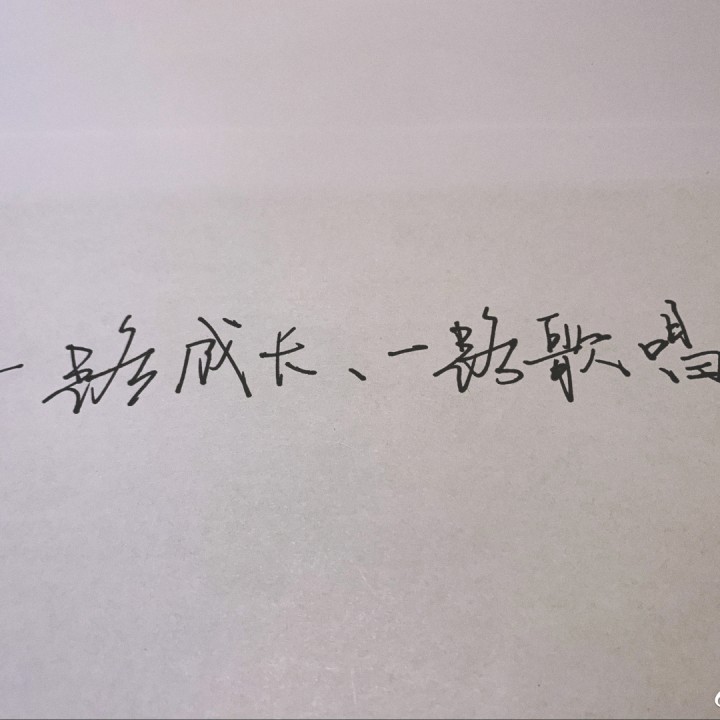 一路成长、一路歌唱